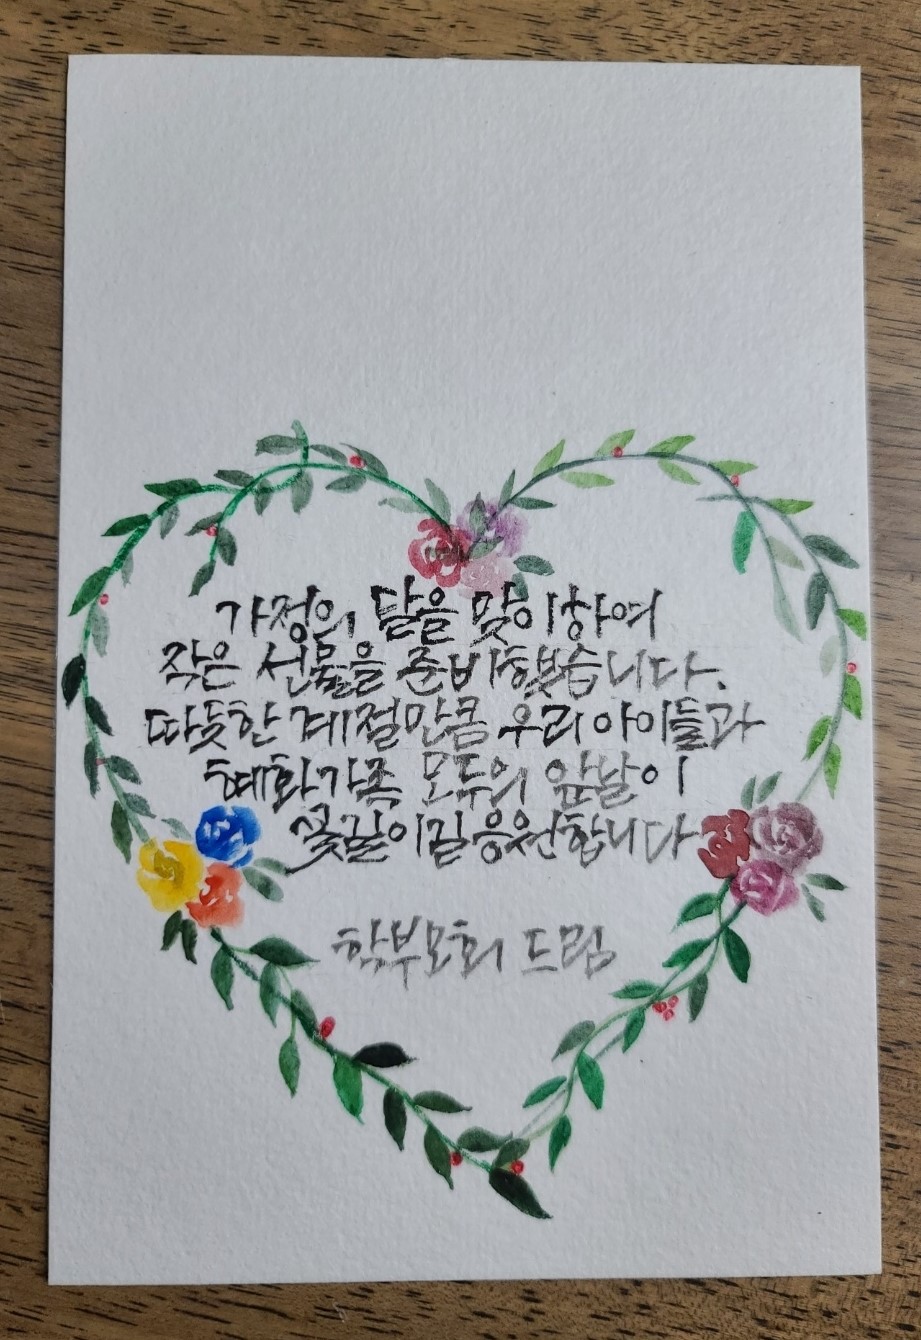 가정의 달을 맞이하여
작은 선물을 준비했습니다.
따뜻한 계절만큼 우리 아이들과
혜화가족 모두의 앞날이
꽃길이길 응원합니다
학부모회 드림